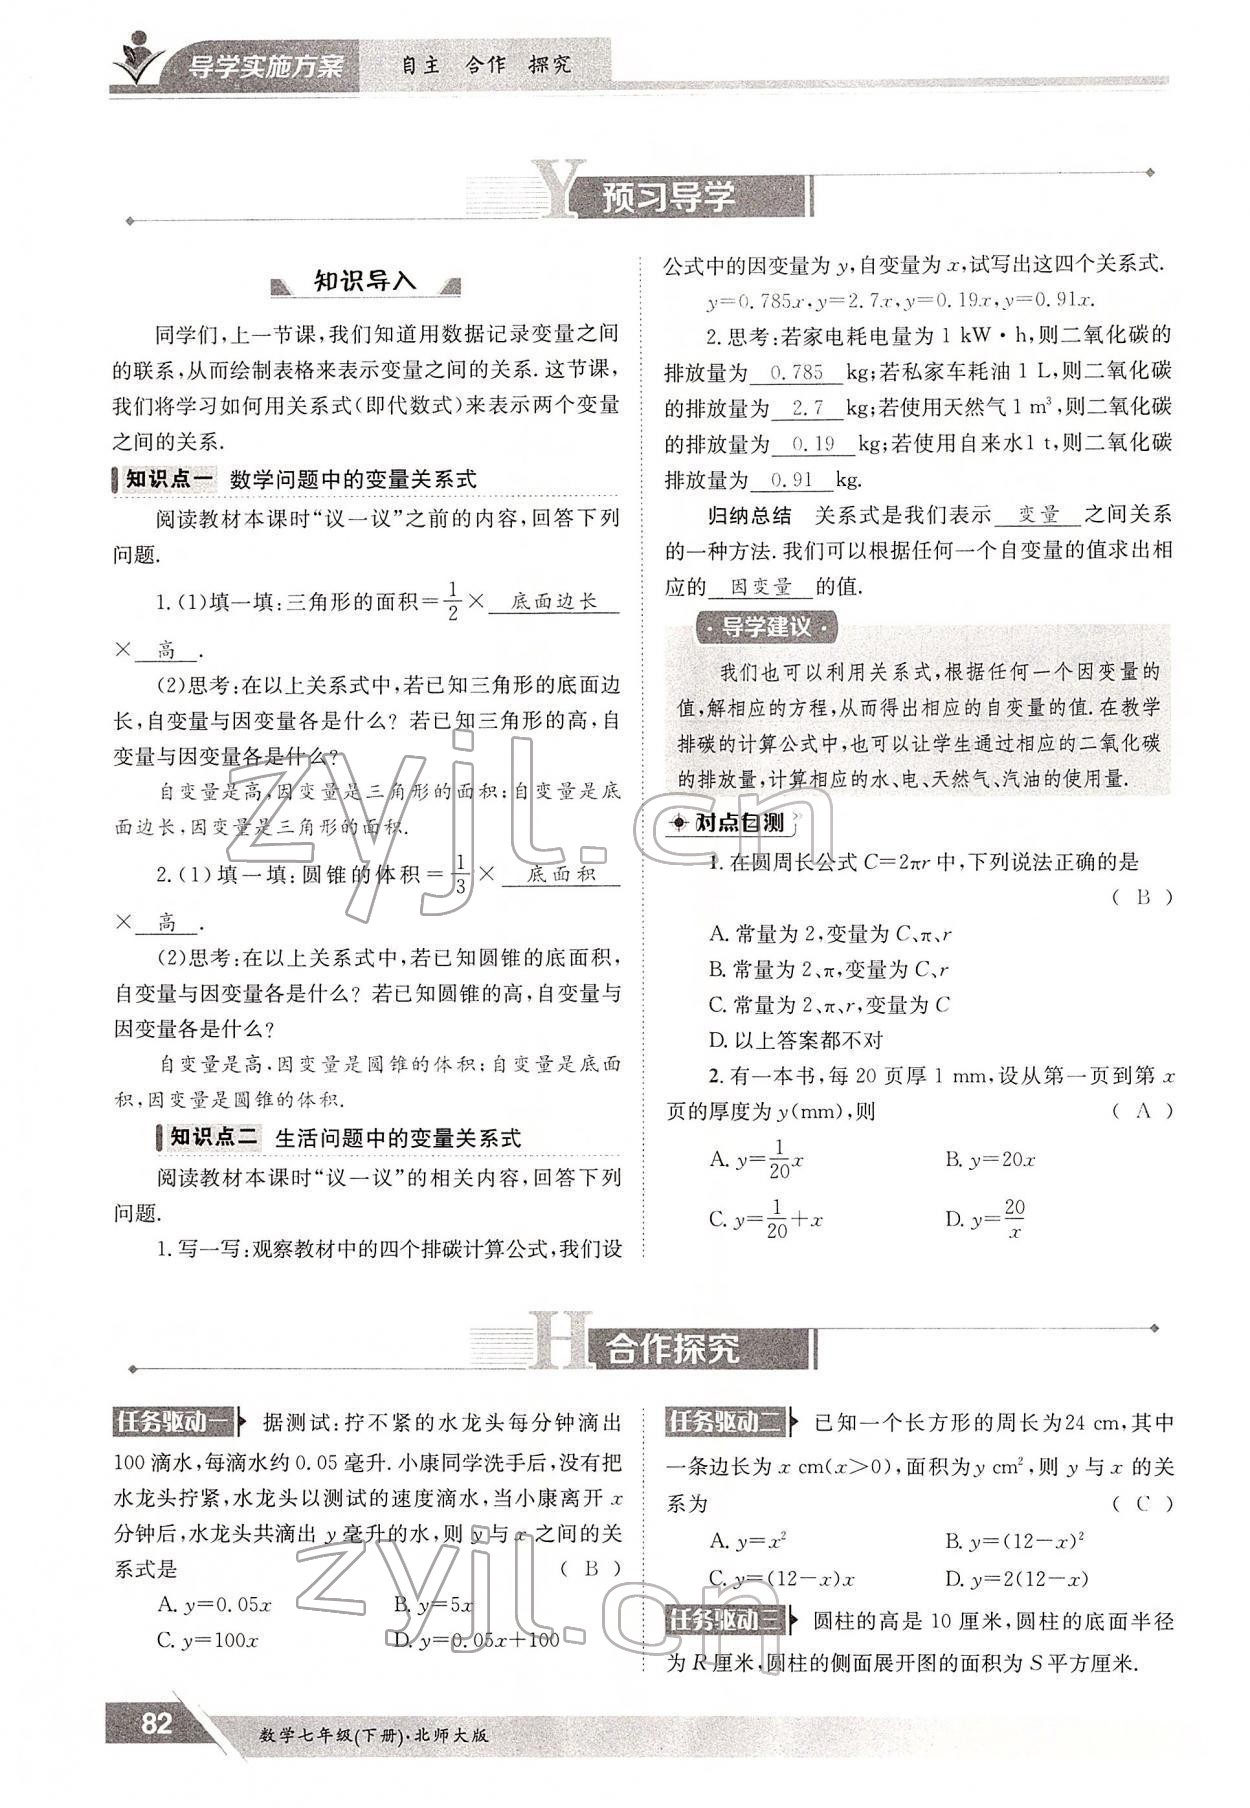 导学实施方案 自主 合作 探究
Y 预习导学
知识导入
同学们,上一节课,我们知道用数据记录变量之间
的联系,从而绘制表格来表示变量之间的关系. 这节课,
我们将学习如何用关系式(即代数式)来表示两个变量
之间的关系.
知识点一 数学问题中的变量关系式
阅读教材本课时“议一议”之前的内容,回答下列
问题.
1. (1)填一填:三角形的面积=1/2× 底面边长
× 高 .
(2)思考:在以上关系式中,若已知三角形的底面边
长,自变量与因变量各是什么? 若已知三角形的高,自
变量与因变量各是什么?
自变量是高,因变量是三角形的面积;自变量是底
面边长,因变量是三角形的面积.
2. (1)填一填:圆锥的体积=1/3× 底面积
× 高 .
(2)思考:在以上关系式中,若已知圆锥的底面积,
自变量与因变量各是什么? 若已知圆锥的高,自变量与
因变量各是什么?
自变量是高,因变量是圆锥的体积;自变量是底面
积,因变量是圆锥的体积.
知识点二 生活问题中的变量关系式
阅读教材本课时“议一议”的相关内容,回答下列
问题.
1. 写一写:观察教材中的四个排碳计算公式,我们设
公式中的因变量为 y,自变量为 x,试写出这四个关系式.
y=0.785x,y=2.7x,y=0.19x,y=0.91x.
2. 思考:若家电耗电量为 1 kW·h,则二氧化碳的
排放量为 0.785 kg;若私家车耗油 1 L,则二氧化碳
的排放量为 2.7 kg;若使用天然气 1 m³,则二氧化碳
的排放量为 0.19 kg;若使用自来水 1 t,则二氧化碳
排放量为 0.91 kg.
归纳总结 关系式是我们表示 变量 之间关系
的一种方法. 我们可以根据任何一个自变量的值求出相
应的 因变量 的值.
·导学建议·
我们也可以利用关系式,根据任何一个因变量的
值,解相应的方程,从而得出相应的自变量的值. 在教学
排碳的计算公式中,也可以让学生通过相应的二氧化碳
的排放量,计算相应的水、电、天然气、汽油的使用量.
对点自测
1. 在圆周长公式 C=2πr 中,下列说法正确的是
( B )
A. 常量为 2,变量为 C、π、r
B. 常量为 2、π,变量为 C、r
C. 常量为 2、π、r,变量为 C
D. 以上答案都不对
2. 有一本书,每 20 页厚 1 mm,设从第一页到第 x
页的厚度为 y(mm),则 ( A )
A. y=1/20x B. y=20x
C. y=1/20+x D. y=20/x
H 合作探究
任务驱动一 据测试:拧不紧的水龙头每分钟滴出
100 滴水,每滴水约 0.05 毫升. 小康同学洗手后,没有把
水龙头拧紧,水龙头以测试的速度滴水,当小康离开 x
分钟后,水龙头共滴出 y 毫升的水,则 y 与 x 之间的关
系式是 ( B )
A. y=0.05x B. y=5x
C. y=100x D. y=0.05x+100
任务驱动二 已知一个长方形的周长为24 cm,其中
一条边长为 x cm(x>0),面积为y cm²,则 y 与 x 的关
系为 ( C )
A. y=x² B. y=(12-x)²
C. y=(12-x)x D. y=2(12-x)
任务驱动三 圆柱的高是 10 厘米,圆柱的底面半径
为 R 厘米,圆柱的侧面展开图的面积为 S 平方厘米.
82 数学七年级(下册)·北师大版
zyjl.cn
zyjl.cn